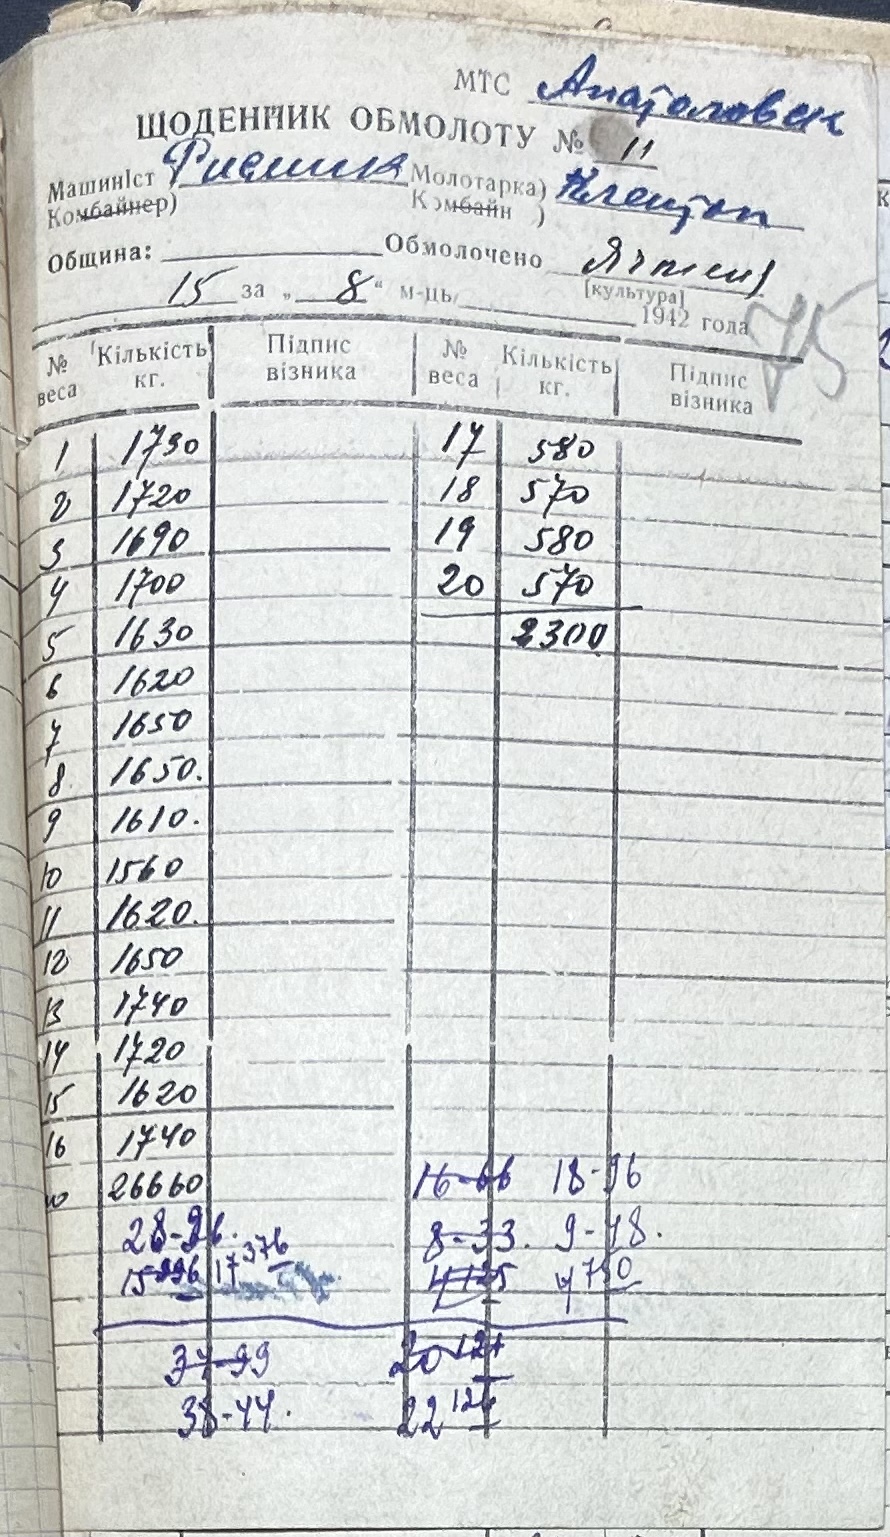 МТС
ЩОДЕННИК ОБМОЛОТУ № 11
Машиніст Молотарка)
Комбайнер) Комбайн )
Община: Обмолочено Ячмінь
[культура]
15 за „ 8 “ м-ць 1942 года
75
№ веса Кількість кг. Підпис візника № веса Кількість кг. Підпис візника
1 1730 17 580
2 1720 18 570
3 1690 19 580
4 1700 20 570
5 1630 2300
6 1620
7 1650
8. 1650.
9 1610.
10 1560
11 1620.
12 1650
13 1740
14 1720
15 1620
16 1740
26660 16-66 18-96
28-96. 8-33. 9-48.
15 996 17 376 4 125 4 750
37-99 20 121
38-44. 22 126